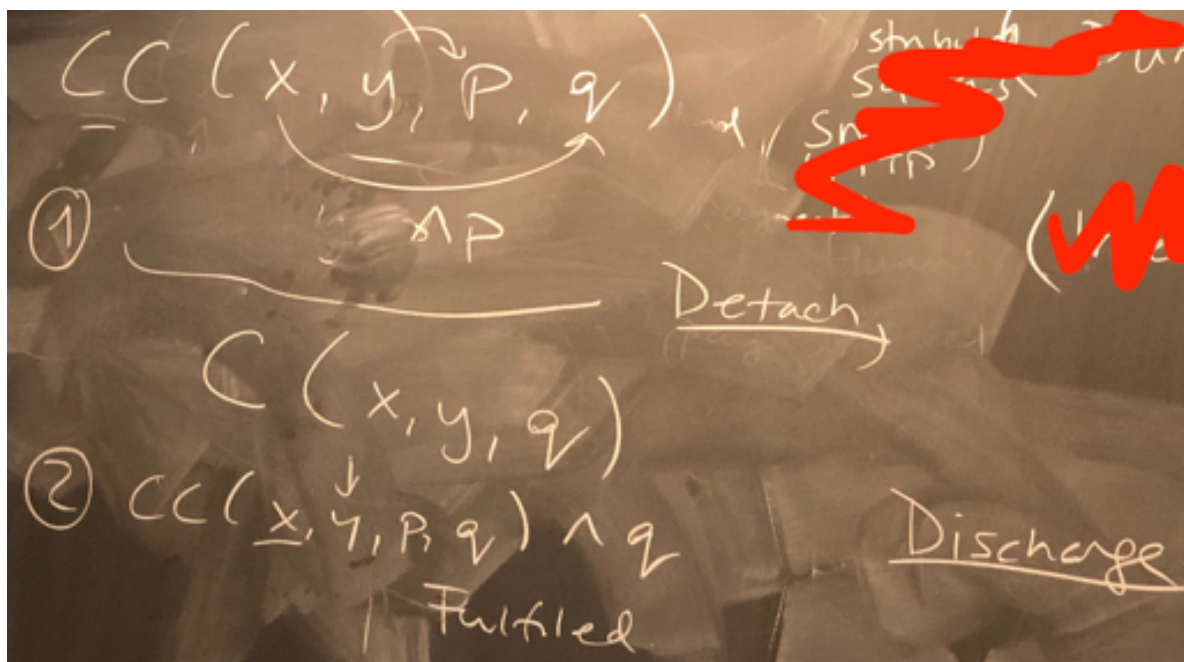 CC(x, y, P, q)
① ∧ P
Detach
C(x, y, q)
② CC(x, y, P, q) ∧ q
Discharge
Fulfiled